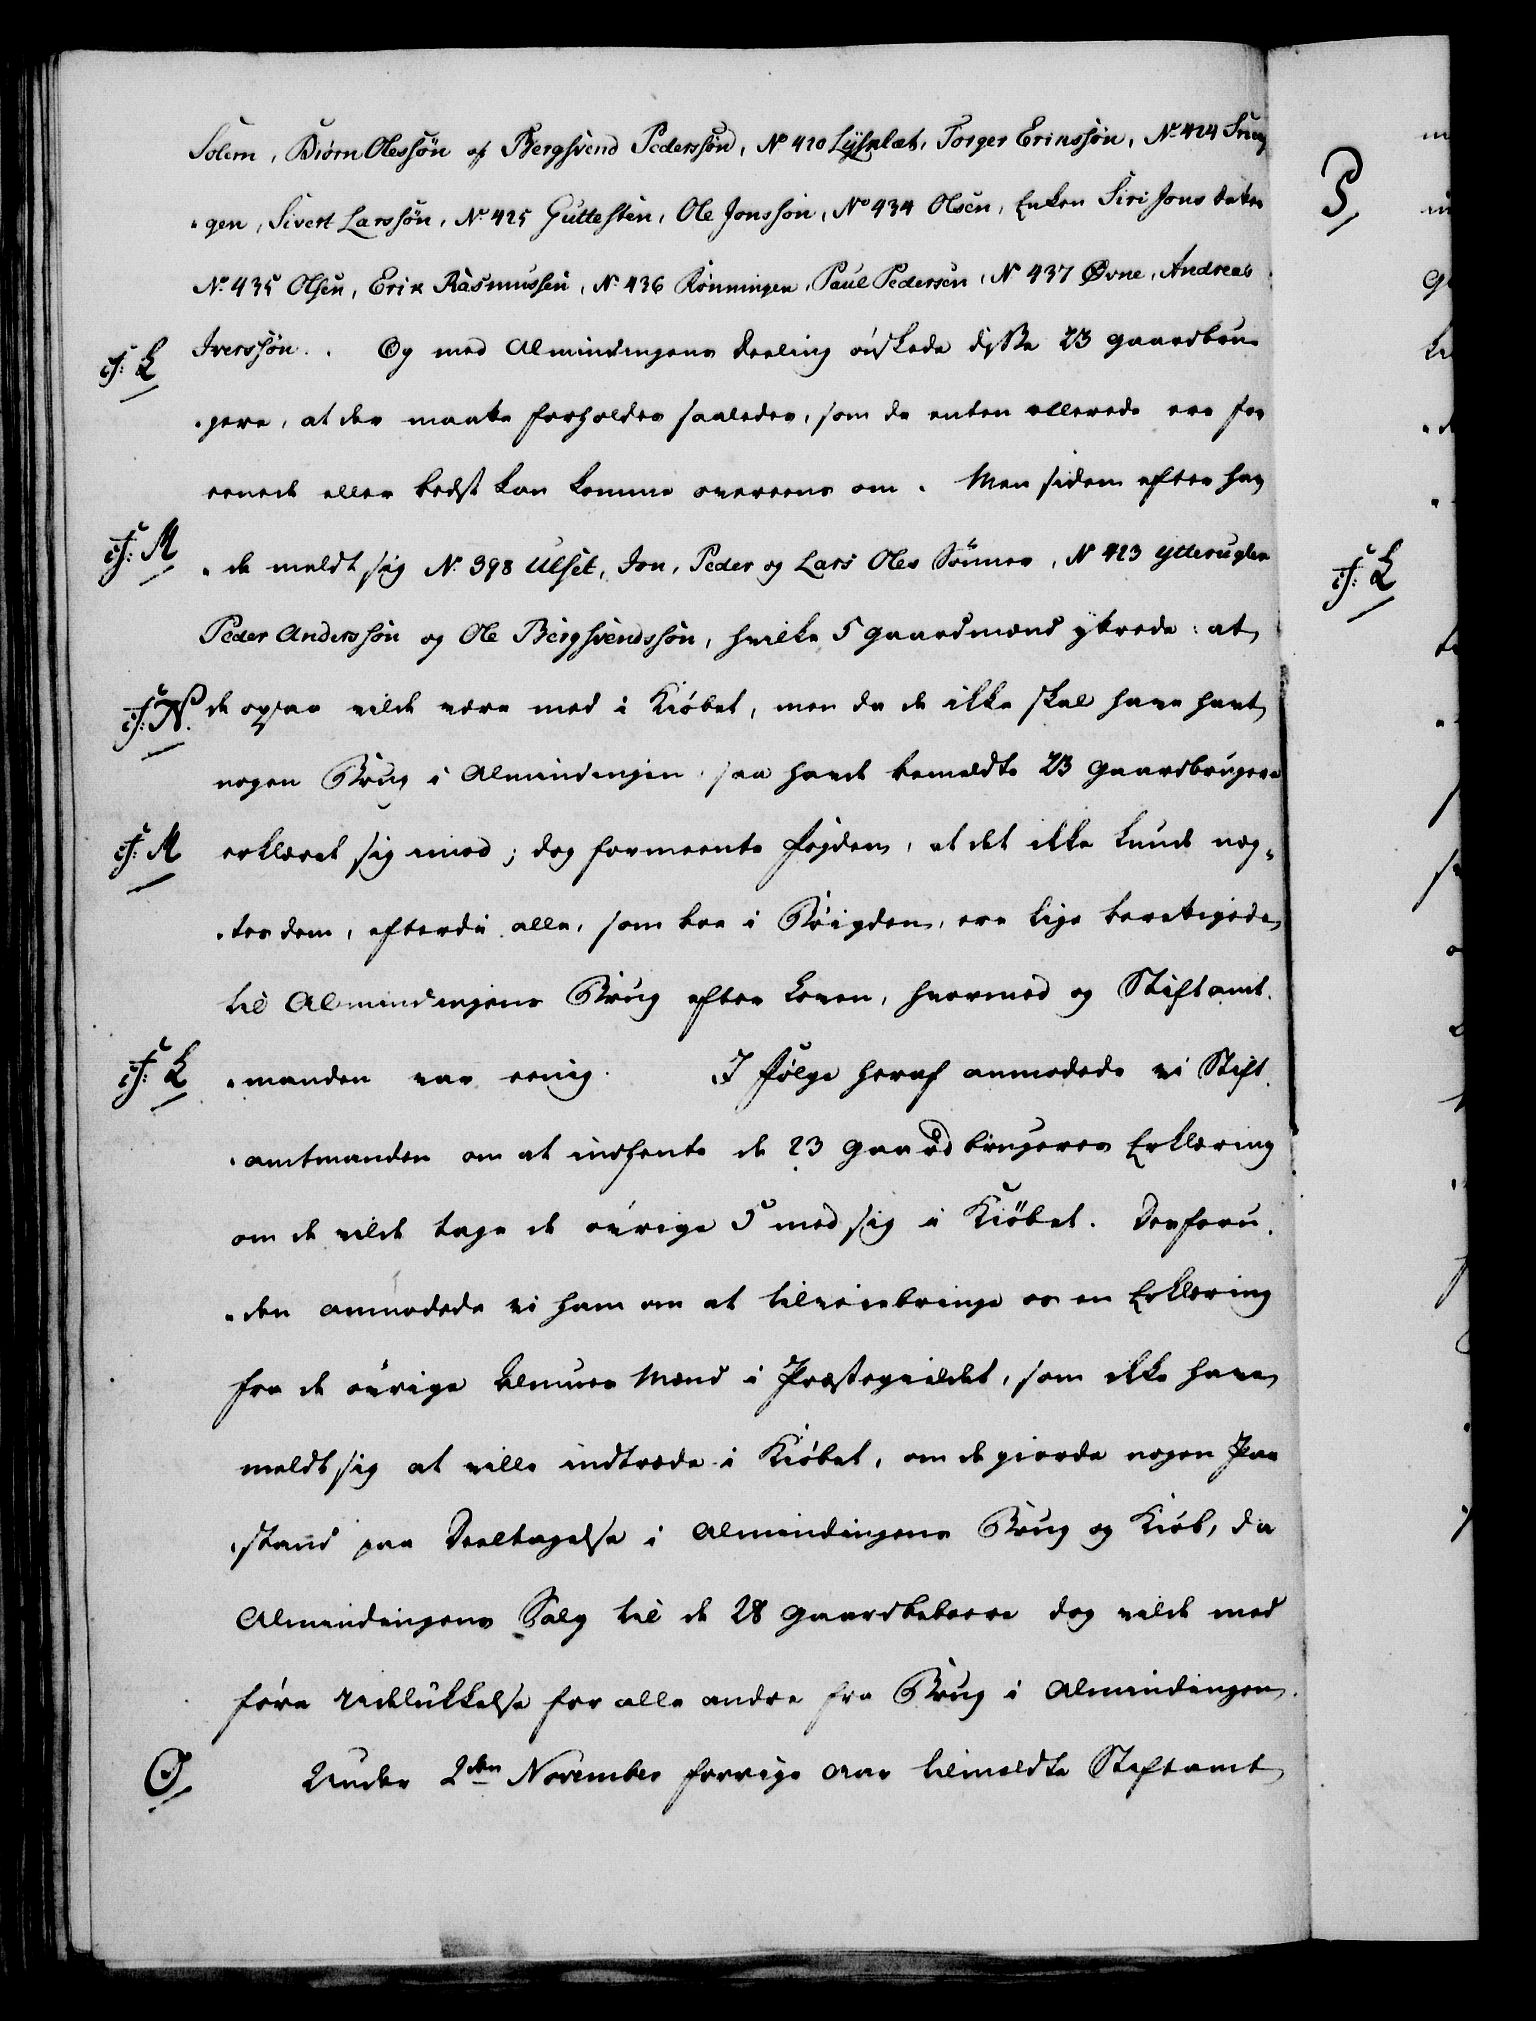 Solem, Biörn Olessön og Bergsvend Pederssön, No 420 Lysklæt, Torger Erikssön, No 424
gen, Sivert Larssön, No 425 Guttesten, Ole Jonssön, No 434 Olsen, Enken Siri Jons datter
No 435 Olsen, Erik Rasmussen, No 436 Rönningen, Paul Pedersen, No 437 Øvne, Andreas
cf: L Iverssön. Og med Almindingens Deeling önskede disse 23 Gaardbru-
gere, at der maatte forholdes saaledes, som de enten allerede ere for
eenede eller bedst kan komme overeens om. Men siden efter hav
cf: M de meldt sig No 398 Ulset, Jon, Peder og Lars Oles Sönner, No 423 Ytteruglen
Peder Anderssön og Ole Bergsvendssön, hvilke 5 Gaardmænd yttrede: at
cf: N. de ogsaa vilde være med i Kiöbet, men da de ikke skal have havt
nogen Brug i Almindingen, saa havde bemeldte 23 Gaardbrugere
cf: M erklæret sig imod; dog formeente Fogden, at det ikke kunde næg-
tes dem, efterdi alle, som boe i Böigden, ere lige berettigede
til Almindingens Brug efter Loven, hvormed og Stiftamt
cf: L manden var eenig. I fölge heraf anmodede vi Stift
amtmanden om at indhente de 23 Gaardbrugeres Erklæring
om de vilde tage de övrige 5 med sig i Kiöbet. Desforu
den anmodede vi ham om at tilveiebringe os en Erklæring
fra de övrige Almues Mænd i Præstegieldet, som ikke have
meldt sig at ville indtræde i Kiöbet, om de giorde nogen Paa
stand paa Deeltagelse i Almindingens Brug og Kiöb, da
Almindingens Salg til de 28 Gaardbeboere dog vilde med
före Udelukkelse for alle andre fra Brug i Almindingen.
O Under 2den November forrige Aar tilmeldte Stiftamt
P
cf: L